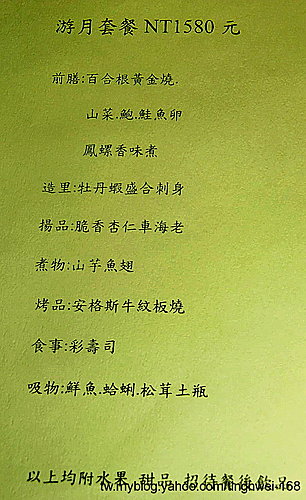 游月套餐 NT1580 元
前膳:百合根黃金燒.
山菜.鮑.鮭魚卵
鳳螺香味煮
造里:牡丹蝦盛合刺身
揚品:脆香杏仁車海老
煮物:山芋魚翅
烤品:安格斯牛紋板燒
食事:彩壽司
吸物:鮮魚.蛤蜊.松茸土瓶
以上均附水果 甜品 招待餐後飲品